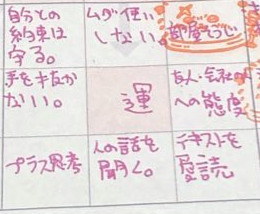 自分との
約束は
守る。
ムダ使い
しない。
部屋そうじ
手を抜か
ない。
運
友人・会社
への態度
プラス思考
人の話を
聞く。
テキストを